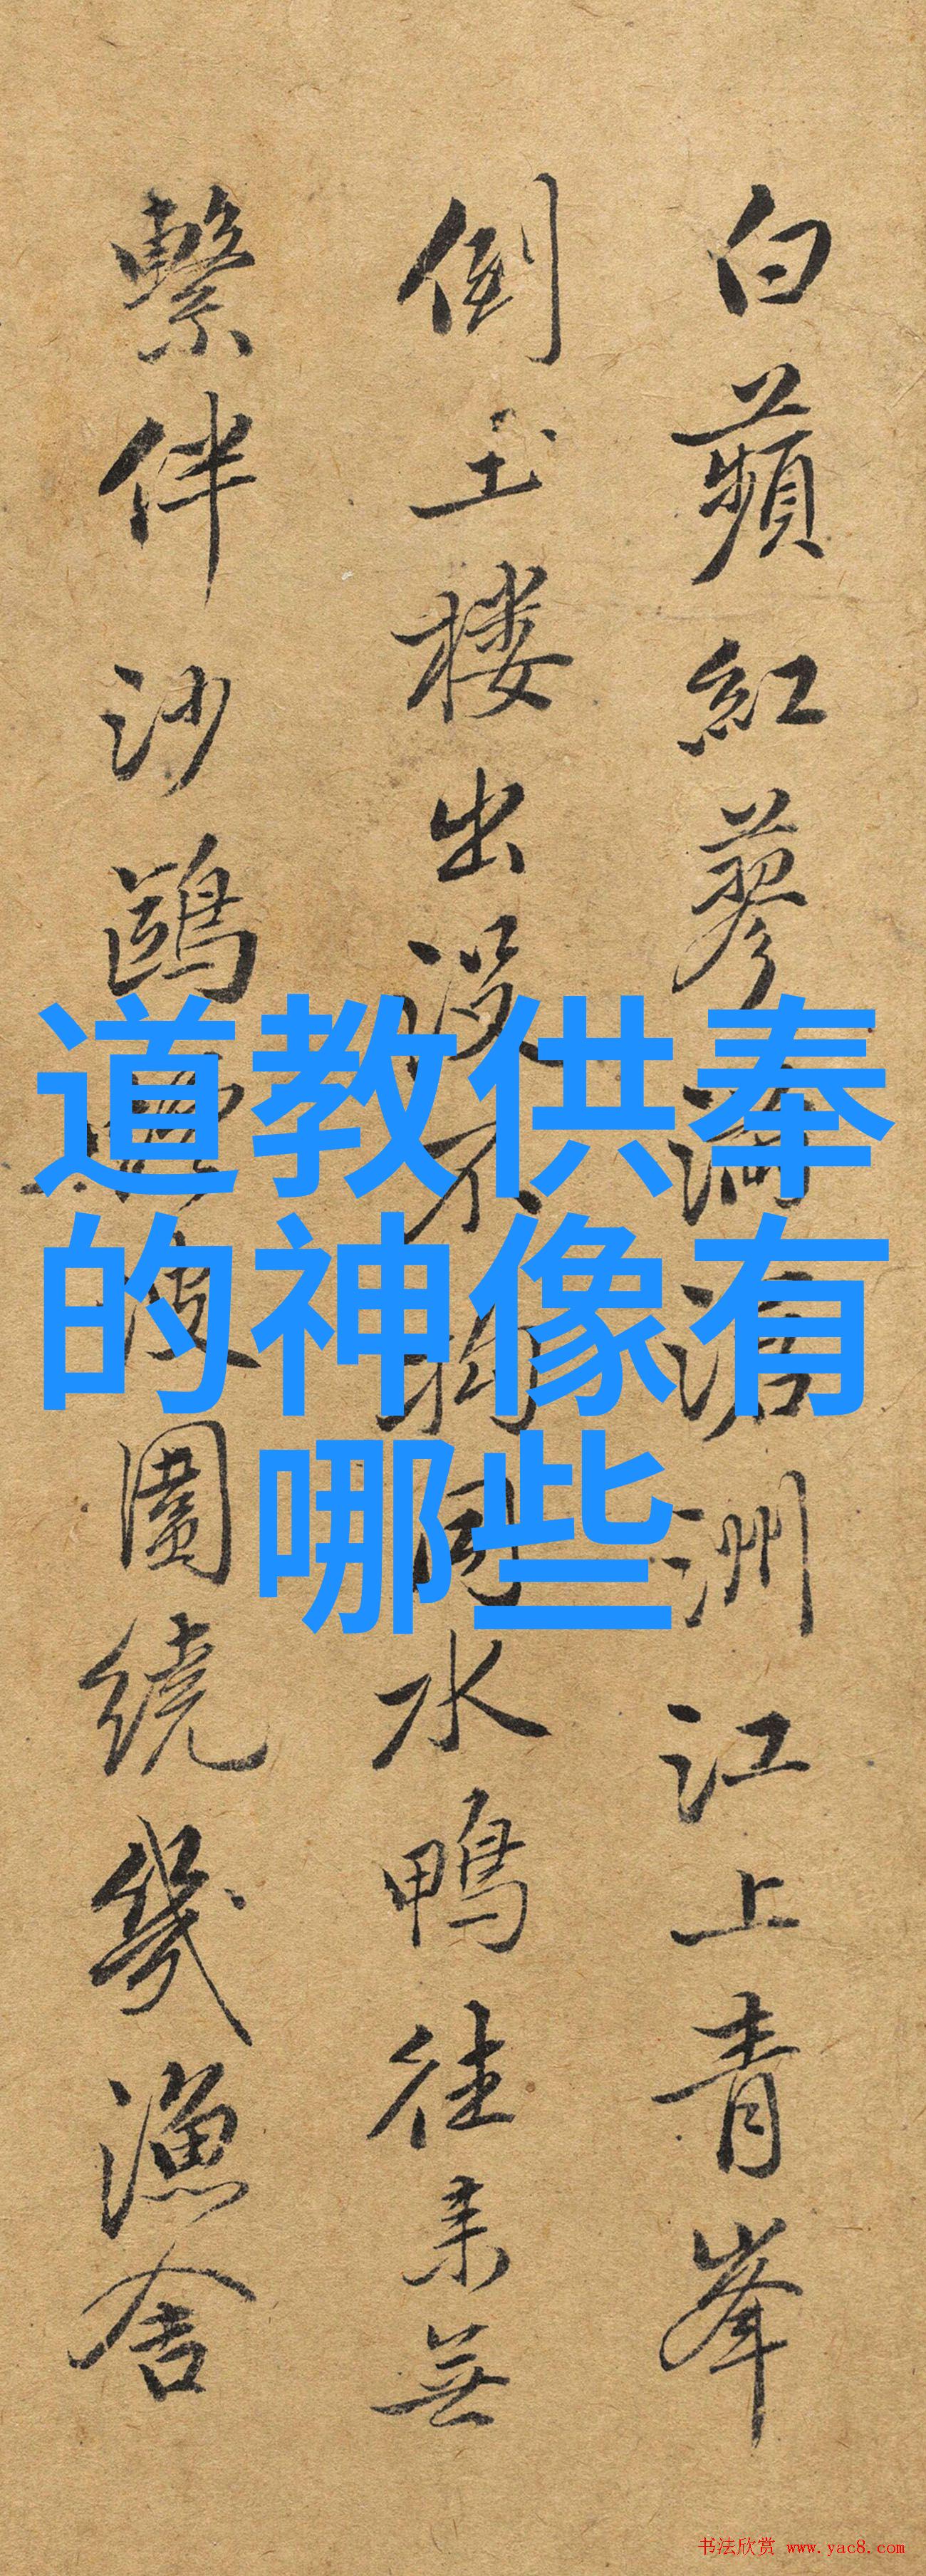 白蘋紅蓼滿滄洲江上青峯
倒玉楼出没不拘同水鴨往来無
繫伴沙鷗波圍繞幾漁舍
道教供奉
的神像有
哪些
书法欣赏 www.yac8.com